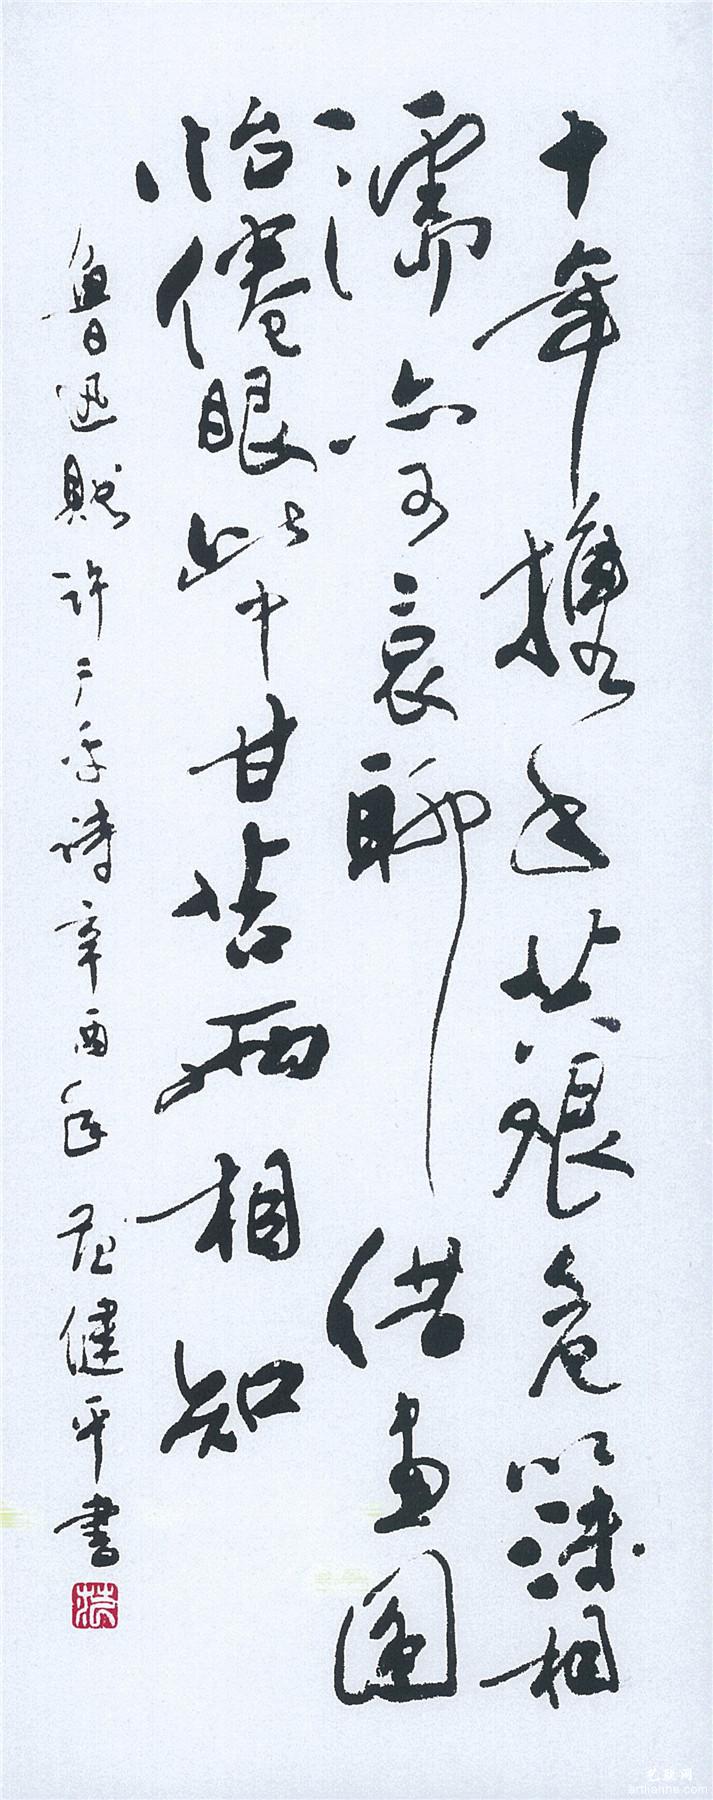 十年携手共艰危以沫相
濡亦可哀聊借畫圖
怡倦眼此中甘苦两相知
魯迅贈许广平诗辛酉年范健平書
artlianhe.com